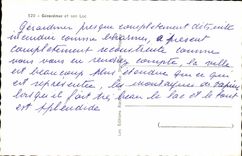 520 - Gérardmer et son Lac
Gerardmer presque completement détruite
incendiée comme à present
completement reconstruite comme
vous vous en rendez compte, la ville
est beaucoup plus etendue que ce qui
est representée, les montagnes de sapins
lorsqu'il fait beau le lac et le tout
est splendide